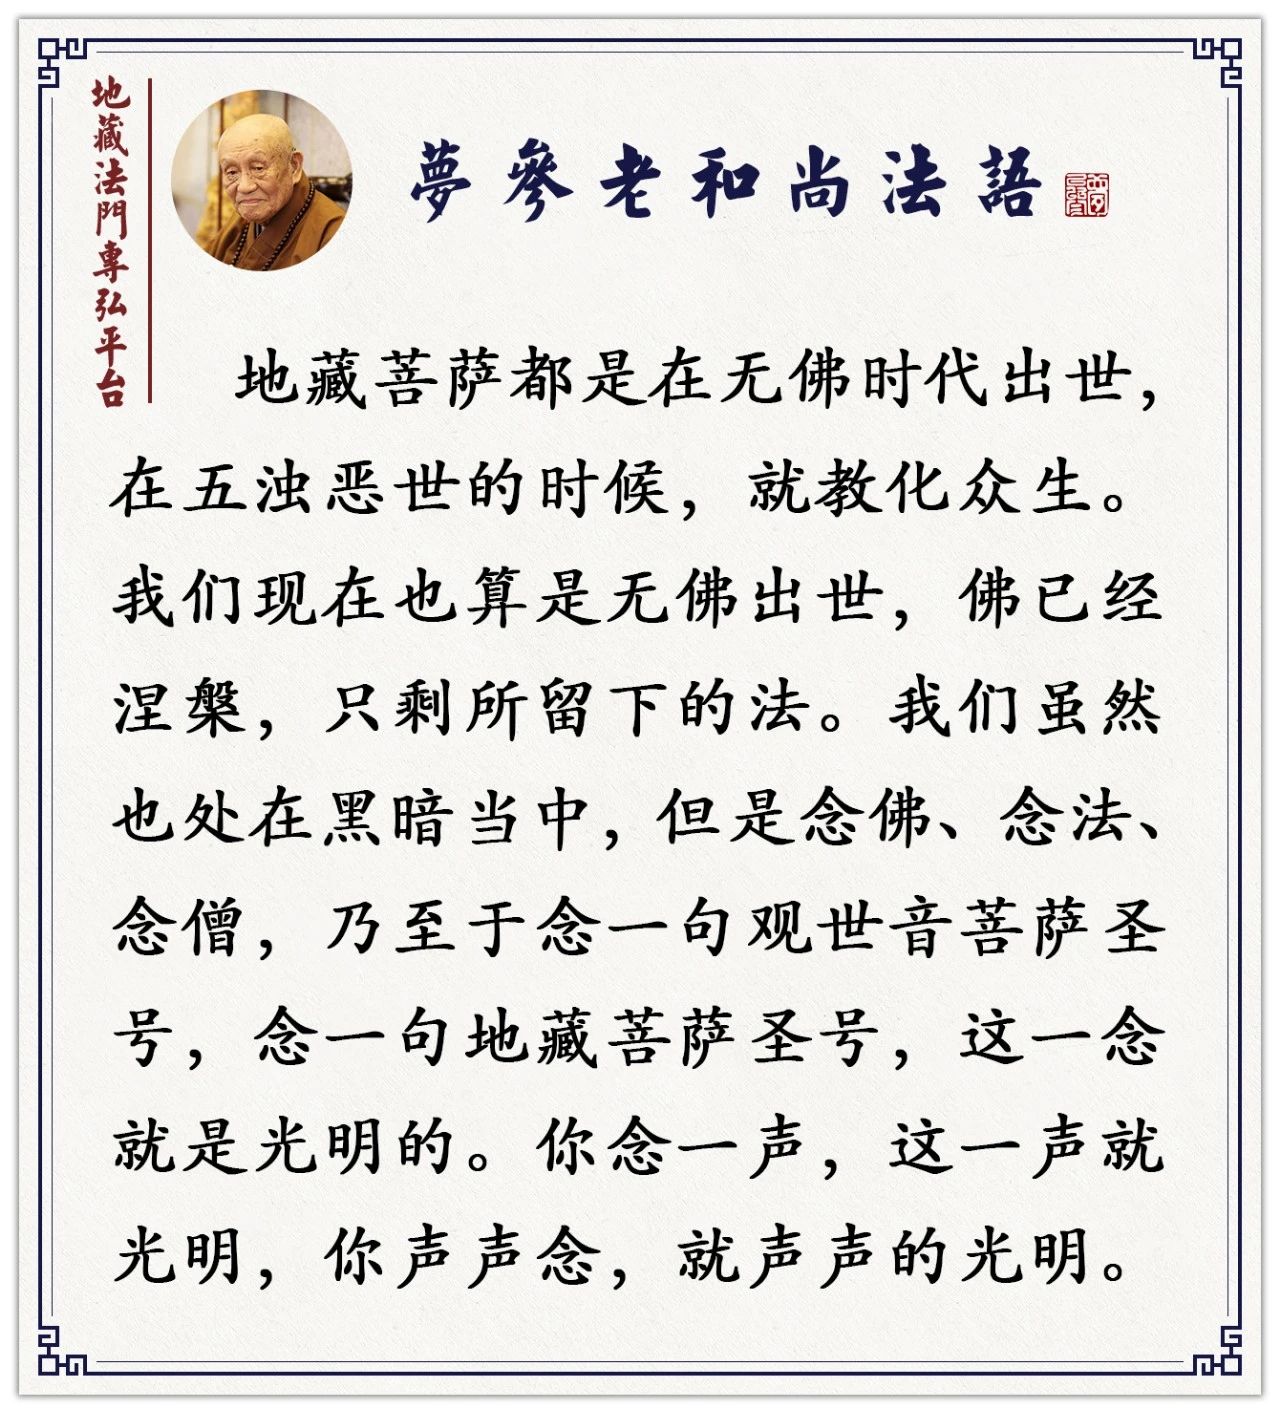 地藏法門專弘平台
夢參老和尚法語
地藏菩萨都是在无佛时代出世，
在五浊恶世的时候，就教化众生。
我们现在也算是无佛出世，佛已经
涅槃，只剩所留下的法。我们虽然
也处在黑暗当中，但是念佛、念法、
念僧，乃至于念一句观世音菩萨圣
号，念一句地藏菩萨圣号，这一念
就是光明的。你念一声，这一声就
光明，你声声念，就声声的光明。